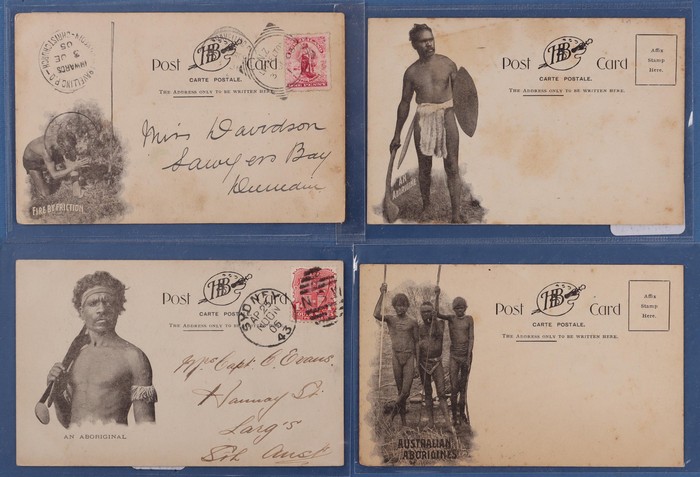 HB
Post Card
CARTE POSTALE.
THE ADDRESS ONLY TO BE WRITTEN HERE.
Miss Davidson
Sawyers Bay
Dunedin
FIRE BY FRICTION
HB
Post Card
CARTE POSTALE.
THE ADDRESS ONLY TO BE WRITTEN HERE.
Affix
Stamp
Here.
AN
ABORIGINE
HB
Post Card
CARTE POSTALE.
THE ADDRESS ONLY TO BE WRITTEN HERE.
SYDNEY
NOON
06
43
Capt. C. Evans.
Hannay St
Larg's
Sth Aust
AN ABORIGINAL
HB
Post Card
CARTE POSTALE.
THE ADDRESS ONLY TO BE WRITTEN HERE.
Affix
Stamp
Here.
AUSTRALIAN
ABORIGINES